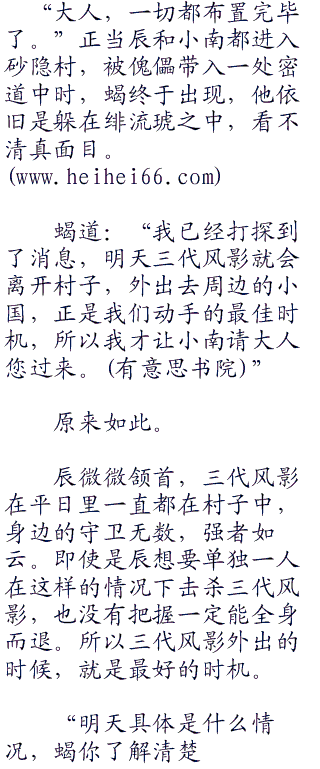 “大人，一切都布置完毕
了。”正当辰和小南都进入
砂隐村，被傀儡带入一处密
道中时，蝎终于出现，他依
旧是躲在绯流琥之中，看不
清真面目。
(www.heihei66.com)
蝎道：“我已经打探到
了消息，明天三代风影就会
离开村子，外出去周边的小
国，正是我们动手的最佳时
机，所以我才让小南请大人
您过来。(有意思书院)”
原来如此。
辰微微颔首，三代风影
在平日里一直都在村子中，
身边的守卫无数，强者如
云。即使是辰想要单独一人
在这样的情况下击杀三代风
影，也没有把握一定能全身
而退。所以三代风影外出的
时候，就是最好的时机。
“明天具体是什么情
况，蝎你了解清楚